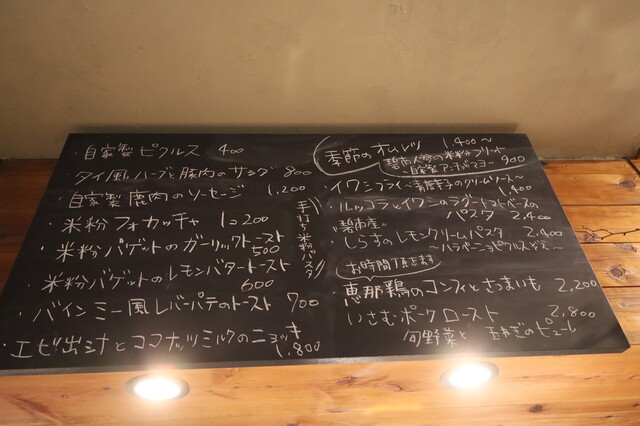 ・自家製ピクルス 400
・タイ風ハーブと豚肉のサラダ 800
・自家製鹿肉のソーセージ 1,200
・米粉フォカッチャ 1コ200
・米粉バゲットのガーリックトースト
500
・米粉バゲットのレモンバタートースト
600
・バインミー風レバーパテのトースト 700
・エビ出汁とココナッツミルクのニョッキ
1,800
手打ち米粉パスタ
季節のオムレツ 1,400〜
碧南人参の米粉フリット
〜自家製アンチョビマヨー 900
・イワシフライ〜 のクリームソース〜
1,400
・ルッコラとイワシのラグートマトベースの
パスタ 2,400
"碧南産"
・しらすのレモンクリームパスタ 2,400
〜ハラペーニョピクルスと〜
お時間頂きます
・恵那鶏のコンフィとさつまいも 2,200
・いさむポークロースト 2,800
旬野菜と玉ねぎのピューレ